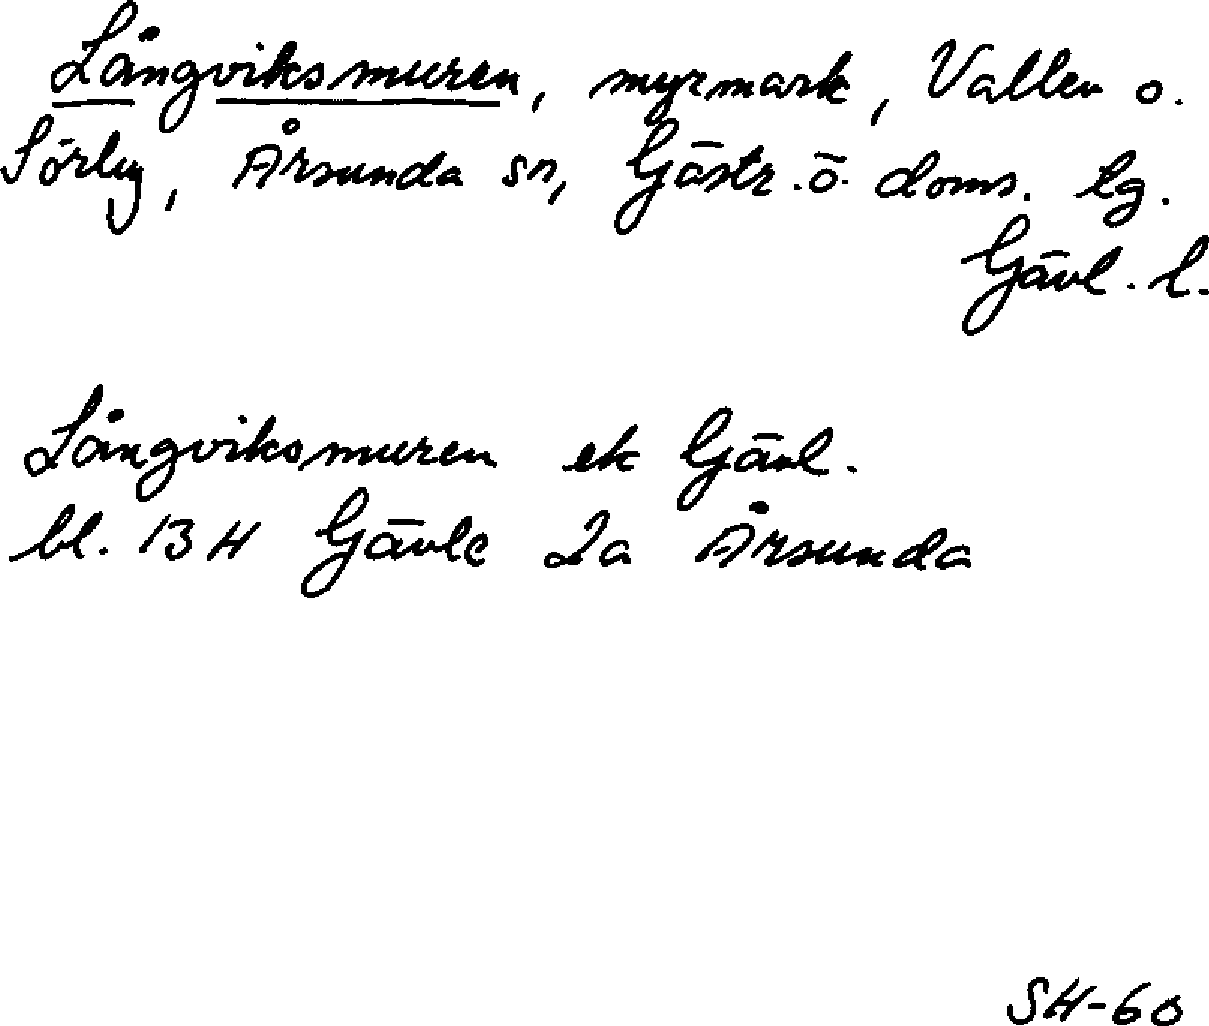 Långviksmuren, myrmark, Vallen o.
Sörby, Årsunda sn, Gästr. ö. doms. lg.
Gävl. l.
Långviksmuren ek Gävl.
bl. 13 H Gävle 2a Årsunda
SH-60